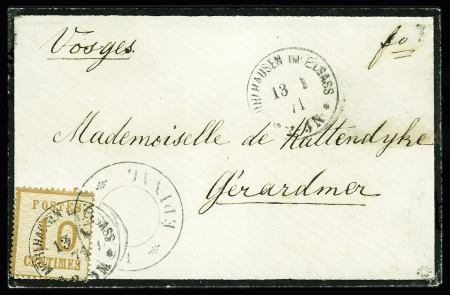 Vosges.
fo
MÜLHAUSEN IM ELSASS
13 1
71
Mademoiselle de Kattendyke
Gérardmer
POSTES
10
CENTIMES
MÜLHAUSEN IM ELSASS
13 1